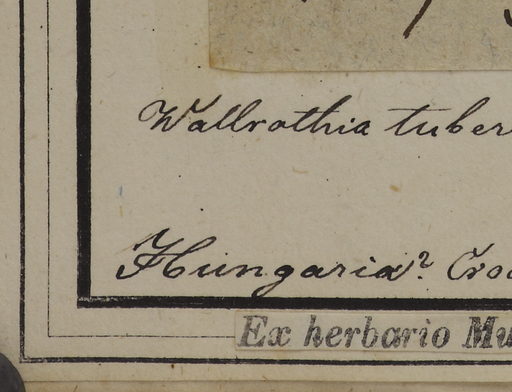 Wallrothia tuber
Hungaria? Croa
Ex herbario Mu